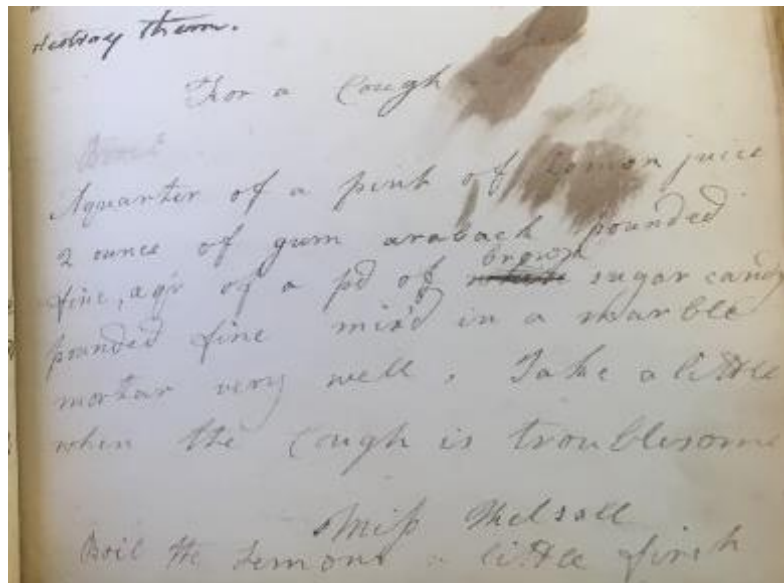 destroy them.
For a Cough
A quarter of a pint of Lemon juice
2 ounce of gum araback pounded
fine, a qr of a pd of brown sugar candy
pounded fine mix'd in a marble
mortar very well. Take a little
when the Cough is troublesome
Miss
Boil the Lemons a little first